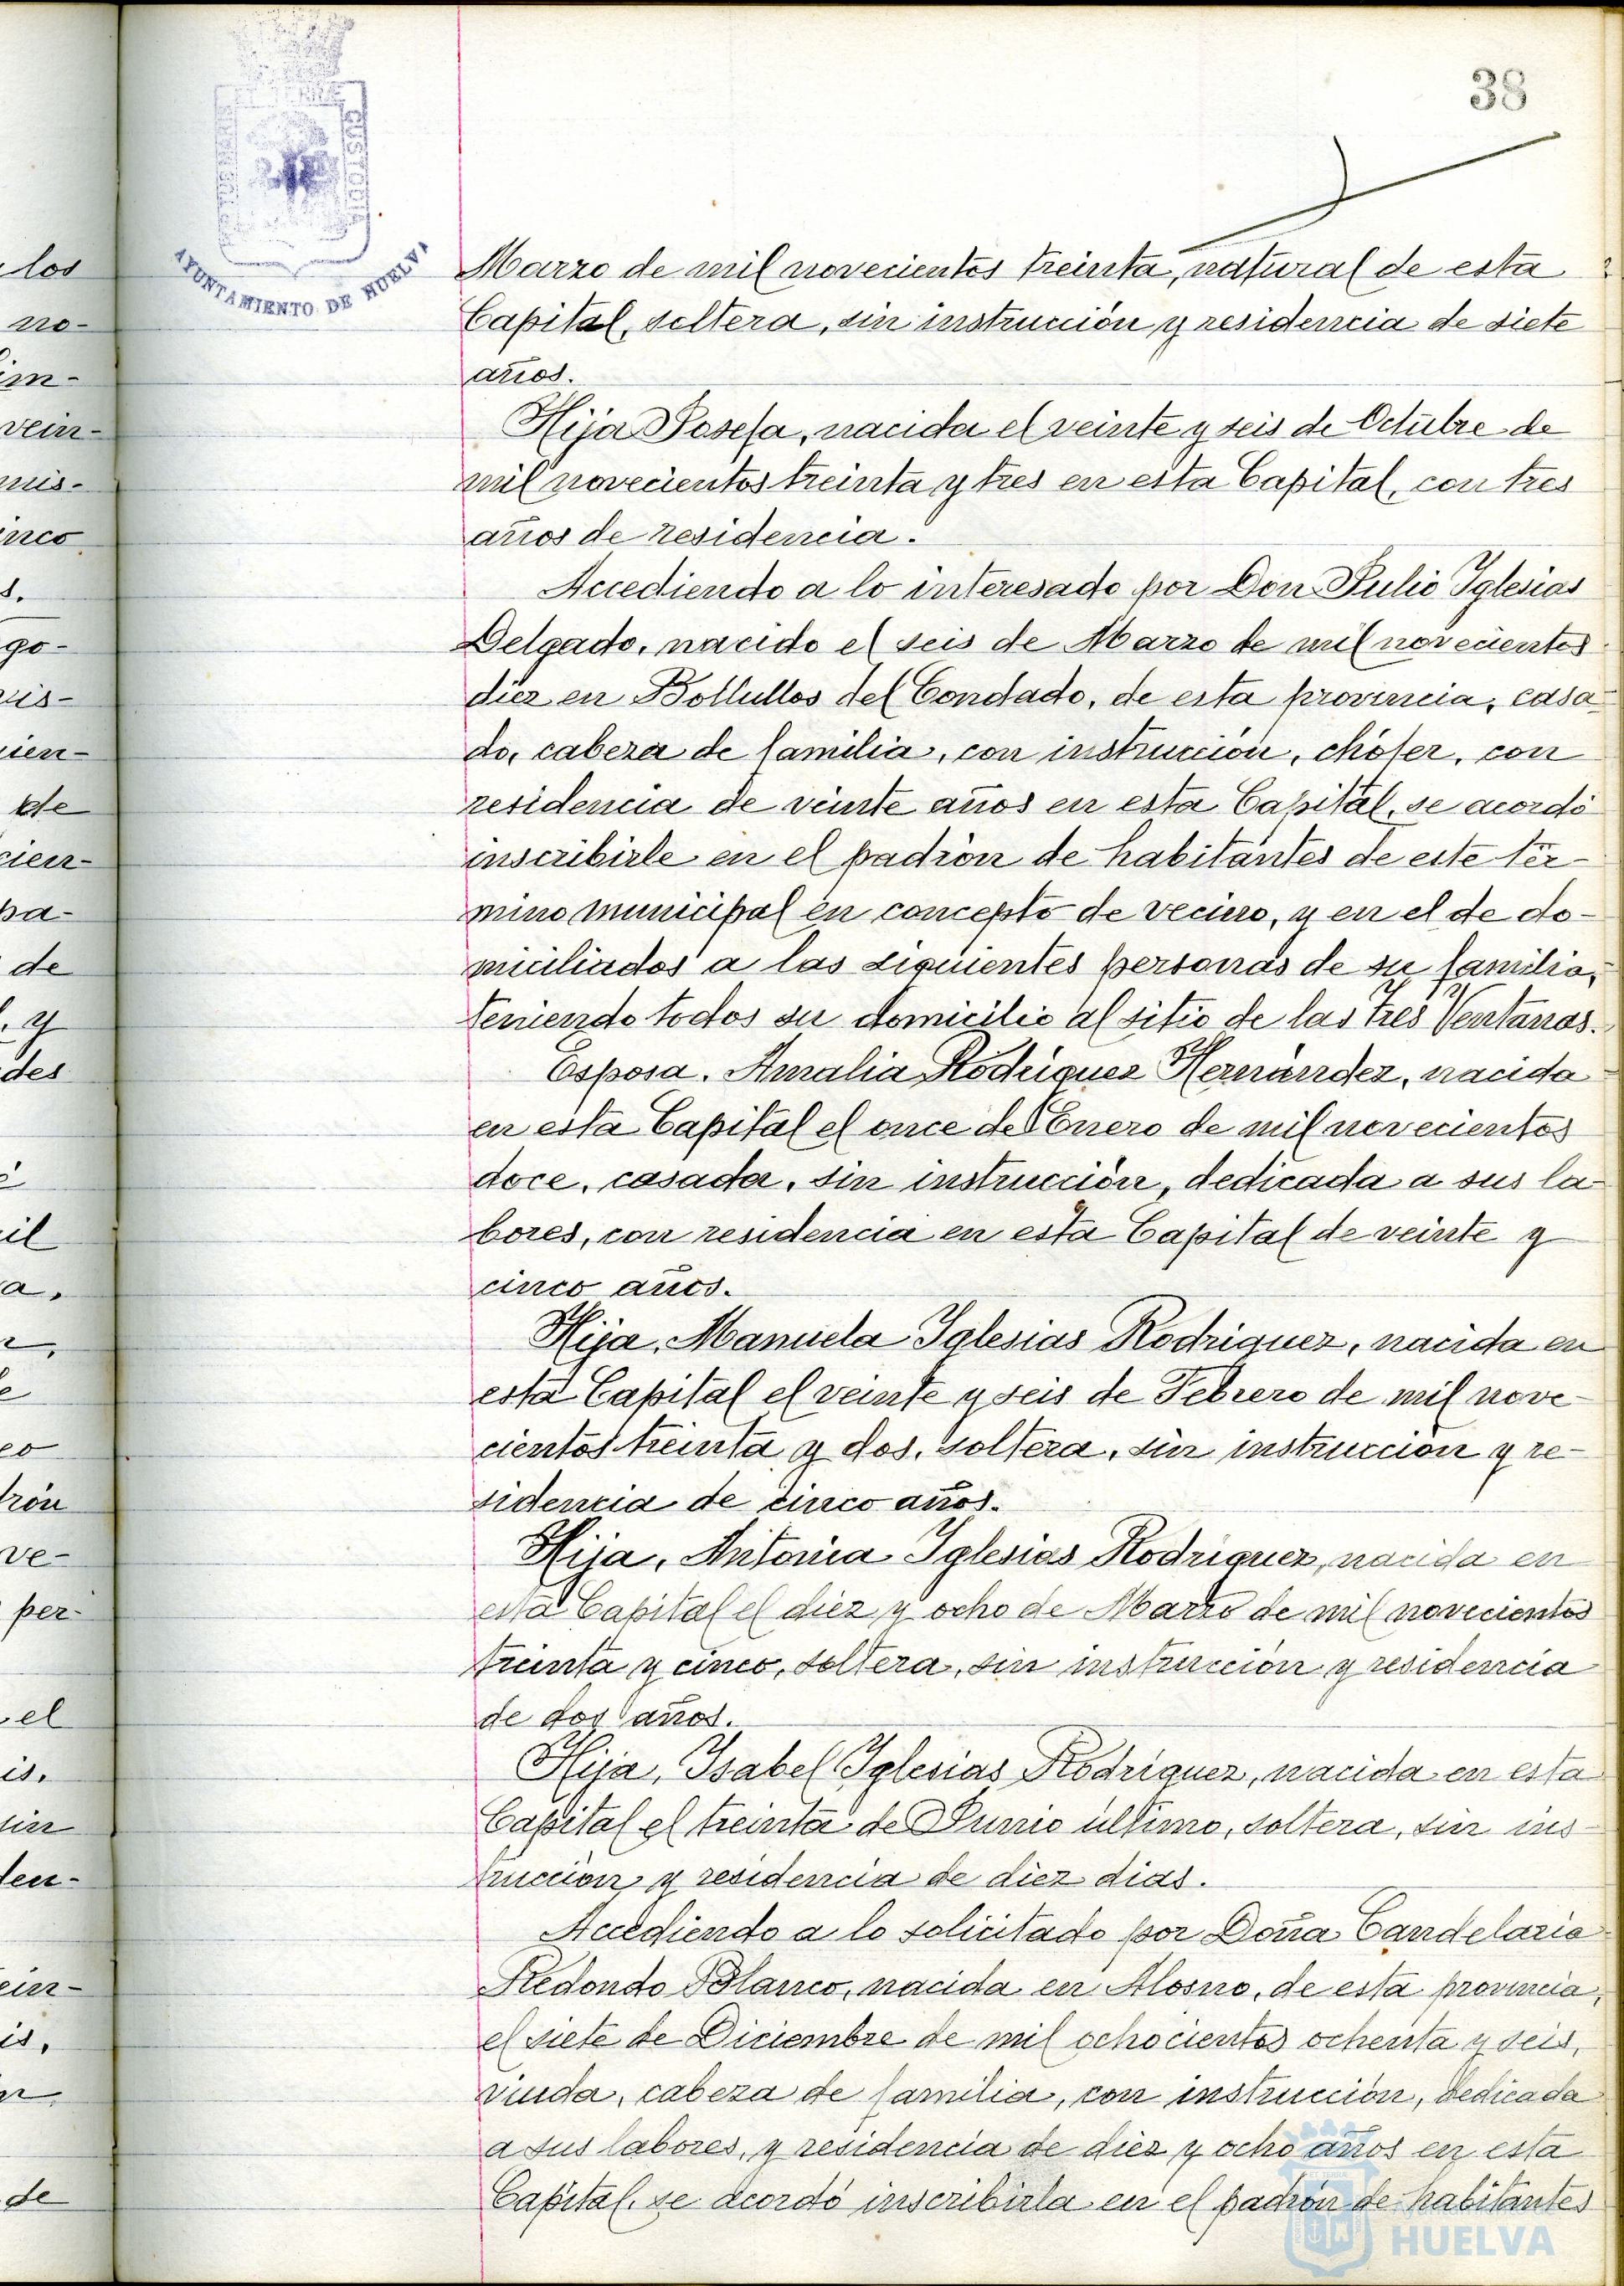 38
PORTUS MARIS ET TERRAE CUSTODIA
AYUNTAMIENTO DE HUELVA
Marzo de mil novecientos treinta, natural de esta
Capital, soltera, sin instrucción y residencia de siete
años.
Hija Josefa, nacida el veinte y seis de Octubre de
mil novecientos treinta y tres en esta Capital, con tres
años de residencia.
Accediendo a lo interesado por Don Julio Iglesias
Delgado, nacido el seis de Marzo de mil novecientos
diez en Bollullos del Condado, de esta provincia, casa-
do, cabeza de familia, con instrucción, chófer, con
residencia de veinte años en esta Capital, se acordó
inscribirle en el padrón de habitantes de este tér-
mino municipal en concepto de vecino, y en el de do-
miciliados a las siguientes personas de su familia,
teniendo todos su domicilio al sitio de las tres Ventanas.
Esposa, Amalia Rodríguez Hernández, nacida
en esta Capital el once de Enero de mil novecientos
doce, casada, sin instrucción, dedicada a sus la-
bores, con residencia en esta Capital de veinte y
cinco años.
Hija, Manuela Iglesias Rodríguez, nacida en
esta Capital el veinte y seis de Febrero de mil nove-
cientos treinta y dos, soltera, sin instrucción y re-
sidencia de cinco años.
Hija, Antonia Iglesias Rodríguez, nacida en
esta Capital el diez y ocho de Marzo de mil novecientos
treinta y cinco, soltera, sin instrucción y residencia
de dos años.
Hija, Isabel Iglesias Rodríguez, nacida en esta
Capital el treinta de Junio último, soltera, sin ins-
trucción y residencia de diez dias.
Accediendo a lo solicitado por Doña Candelaria
Redondo Blanco, nacida en Alosno, de esta provincia,
el siete de Diciembre de mil ochocientos ochenta y seis,
viuda, cabeza de familia, con instrucción, dedicada
a sus labores, y residencia de diez y ocho años en esta
Capital, se acordó inscribirla en el padrón de habitantes
Ayuntamiento de
HUELVA
los
no-
im-
vein-
mis-
inco
s.
go-
uis-
cien-
de
cien-
pa-
de
l, y
des
il
a,
eo
rón
ve-
per-
el
is.
sin
den-
ein-
is,
de